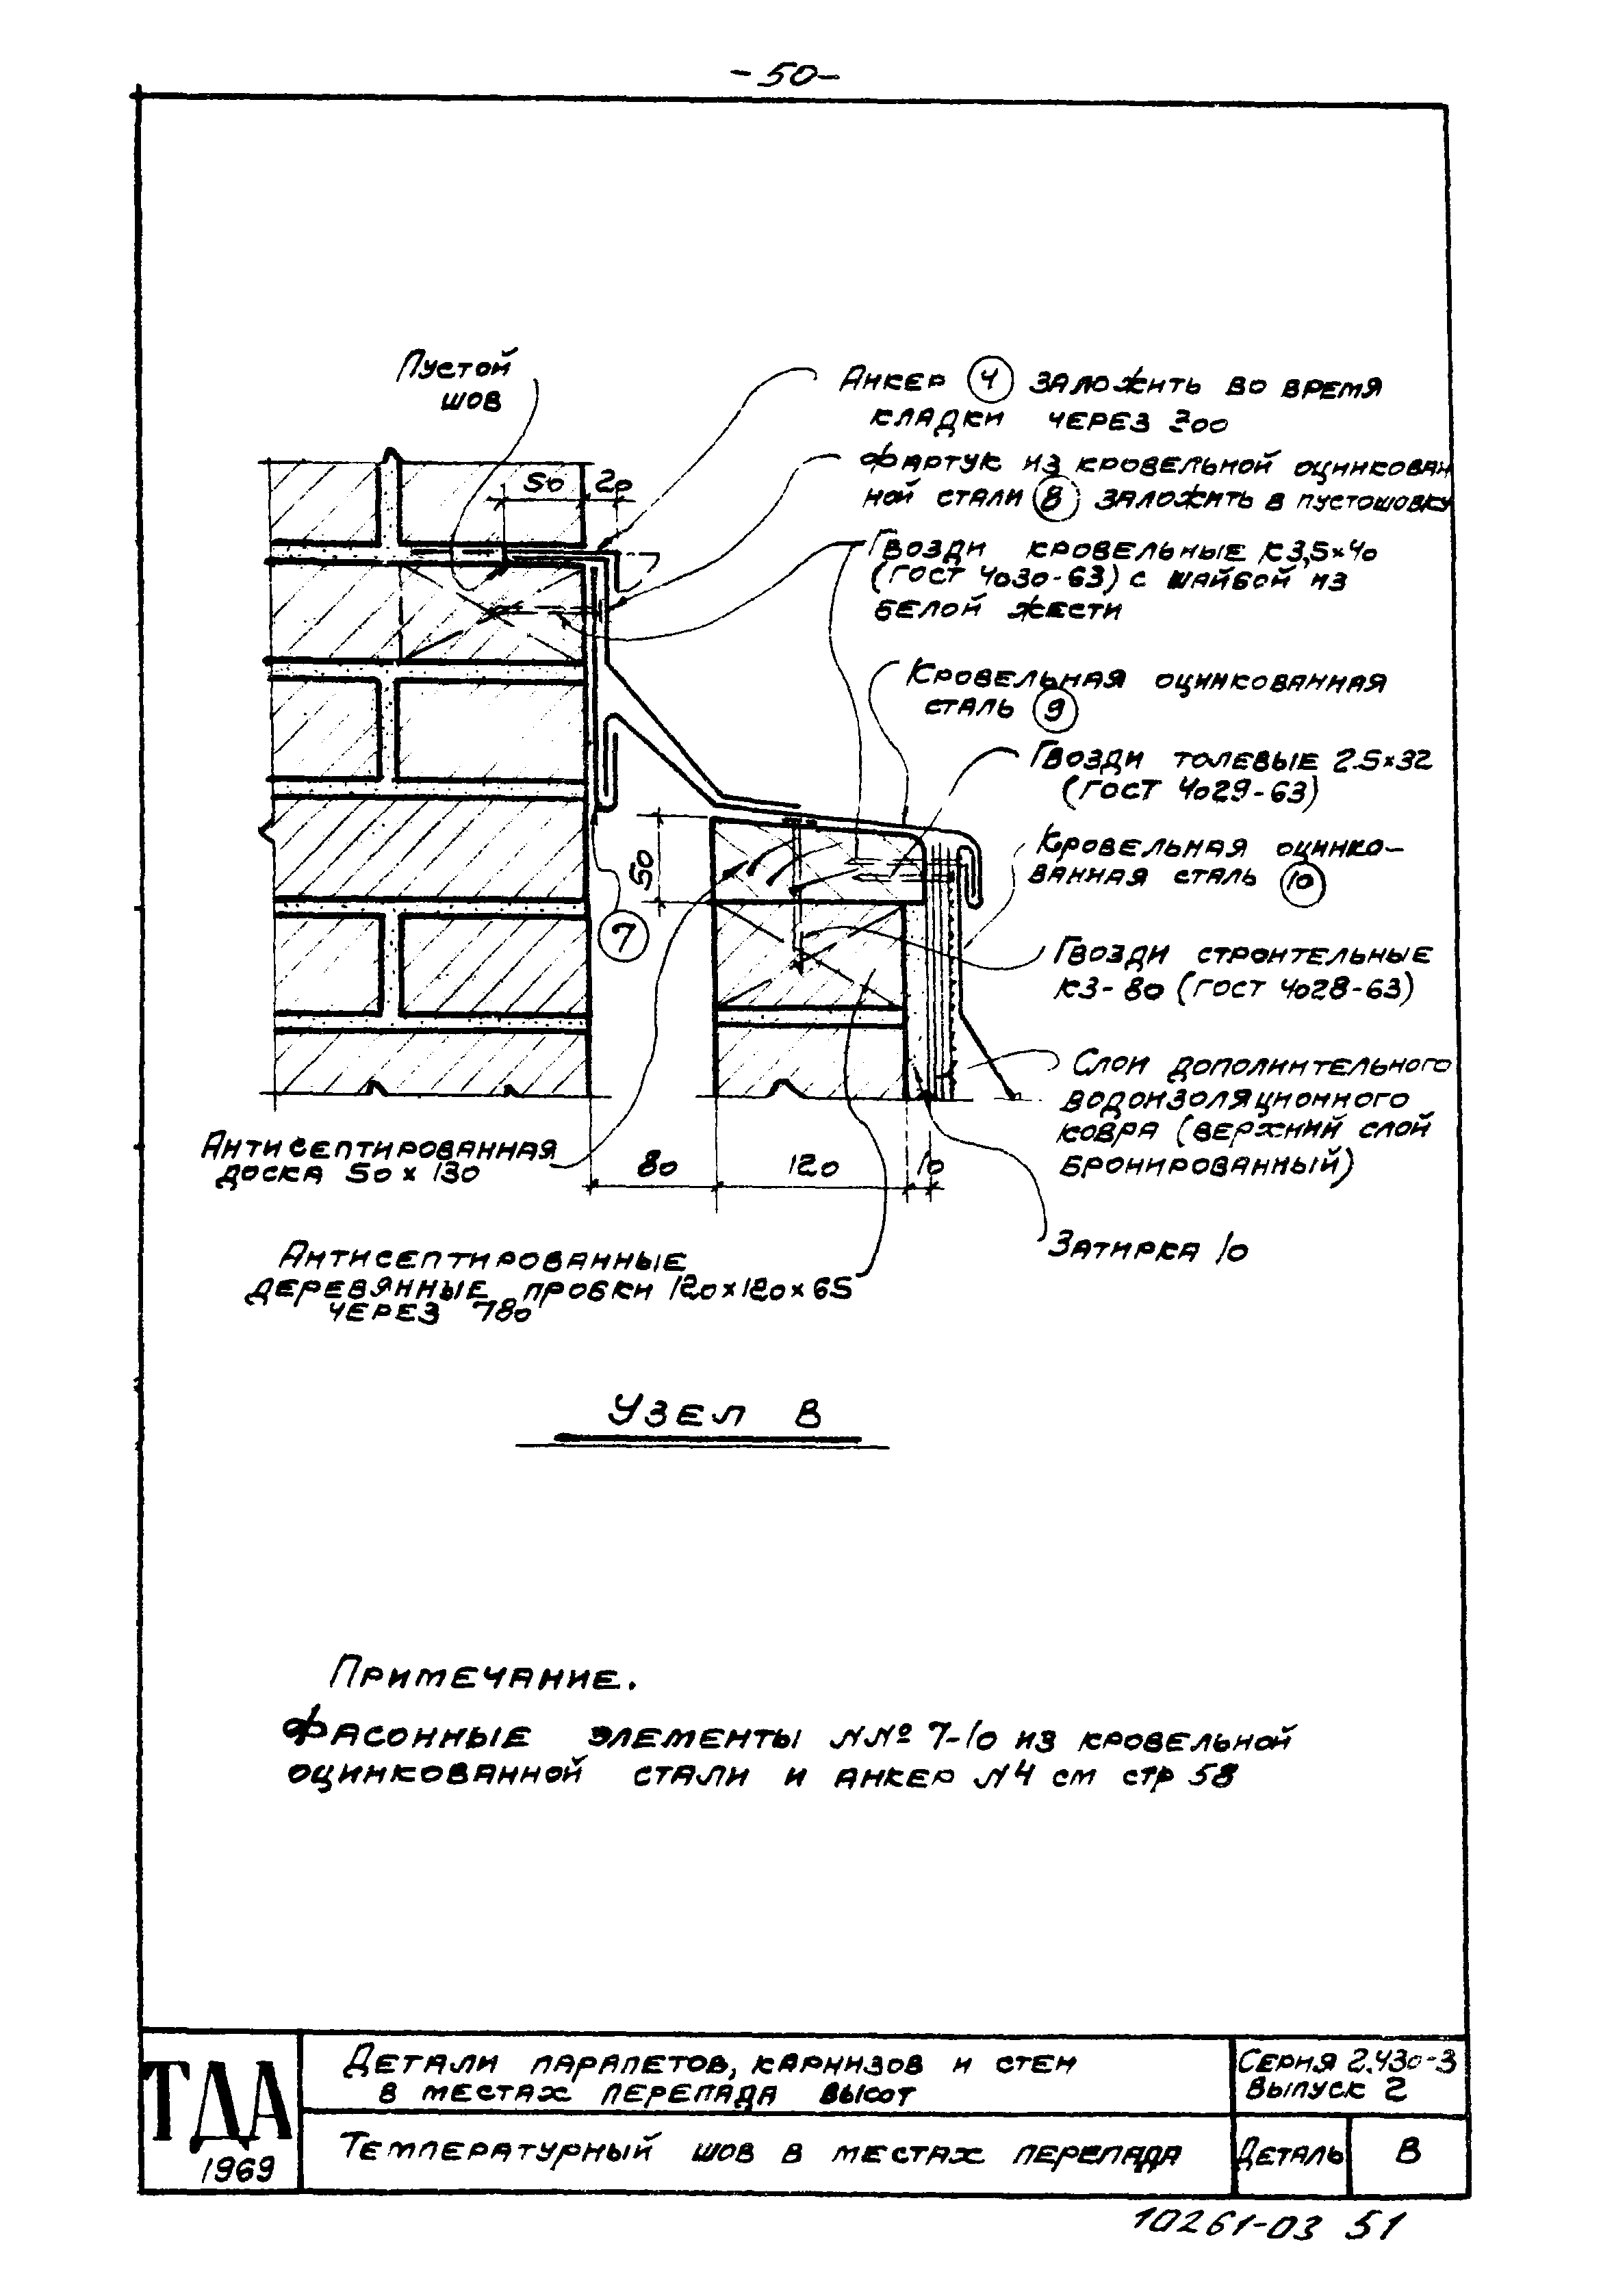 - 50 -
Пустой
шов
50
20
Анкер 4 заложить во время
кладки через 300
Фартук из кровельной оцинкован
ной стали 8 заложить в пустошовку
Гвозди кровельные К3,5×40
(ГОСТ 4030-63) с шайбой из
белой жести
Кровельная оцинкованная
сталь 9
Гвозди толевые 2.5×32
(ГОСТ 4029-63)
50
Кровельная оцинко-
ванная сталь 10
7
Гвозди строительные
К3-80 (ГОСТ 4028-63)
Слои дополнительного
водоизоляционного
ковра (верхний слой
бронированный)
Антисептированная
доска 50 × 130
80
120
10
Затирка 10
Антисептированные
деревянные пробки 120×120×65
через 780
Узел В
Примечание.
Фасонные элементы NN⁰ 7-10 из кровельной
оцинкованной стали и анкер N4 см стр 58
ТДА
1969
Детали парапетов, карнизов и стен
в местах перепада высот
Серия 2.430-3
выпуск 2
Температурный шов в местах перепада
Деталь
В
10261-03 51